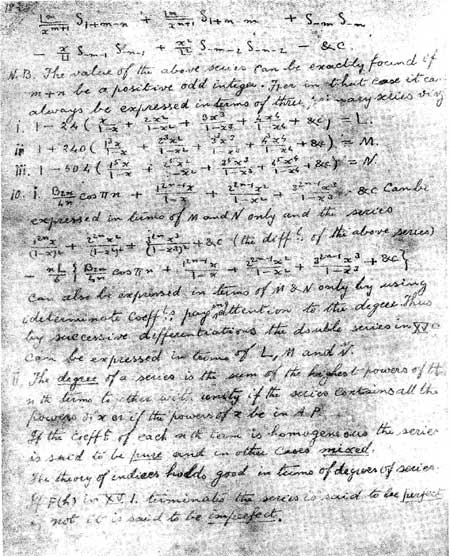 |m/x^{m+1} S_{1+m-n} + |n/x^{n+1} S_{1+n-m} + S_{-m} S_{-n}
- x/|1 S_{-m-1} S_{-n-1} + x²/|2 S_{-m-2} S_{-n-2} - &c
N.B. The value of the above series can be exactly found if
m+n be a positive odd integer. For in that case it can
always be expressed in terms of three primary series viz
i. 1-24(x/1-x + 2x²/1-x² + 3x³/1-x³ + 4x⁴/1-x⁴ + &c) = L.
ii 1+240(1³x/1-x + 2³x²/1-x² + 3³x³/1-x³ + 4³x⁴/1-x⁴ + &c) = M.
iii. 1-504(1⁵x/1-x + 2⁵x²/1-x² + 3⁵x³/1-x³ + 4⁵x⁴/1-x⁴ + &c) = N.
10. i. B_{2n}/4n cos πn + 1^{2n-1}x/1-x + 2^{2n-1}x²/1-x² + 3^{2n-1}x³/1-x³ + &c can be
expressed in terms of M and N only and the series
1^{2n}x/(1-x)² + 2^{2n}x²/(1-x²)² + 3^{2n}x³/(1-x³)² + &c (the diff! of the above series)
- nL/6 {B_{2n}/4n cos πn + 1^{2n-1}x/1-x + 2^{2n-1}x²/1-x² + 3^{2n-1}x³/1-x³ + &c}
can also be expressed in terms of M & N only by using
indeterminate Coeff.ts paying attention to the degree. Thus
by successive differentiations the double series in XV
can be expressed in terms of L, M and N.
ii. The degree of a series is the sum of the highest powers of the
nth terms together with unity if the series contains all the
powers of x or if the powers of x be in A.P.
If the Coeff.t of each nth term is homogenous the series
is said to be pure and in other cases mixed.
The theory of indices holds good in terms of degrees of series.
If F(h) in XV. 1. terminates the series is said to be perfect
if not it is said to be imperfect.